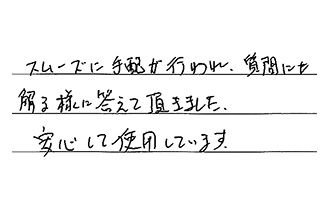 スムーズに手配が行われ、質問にも
解る様に答えて頂きました。
安心して使用しています。